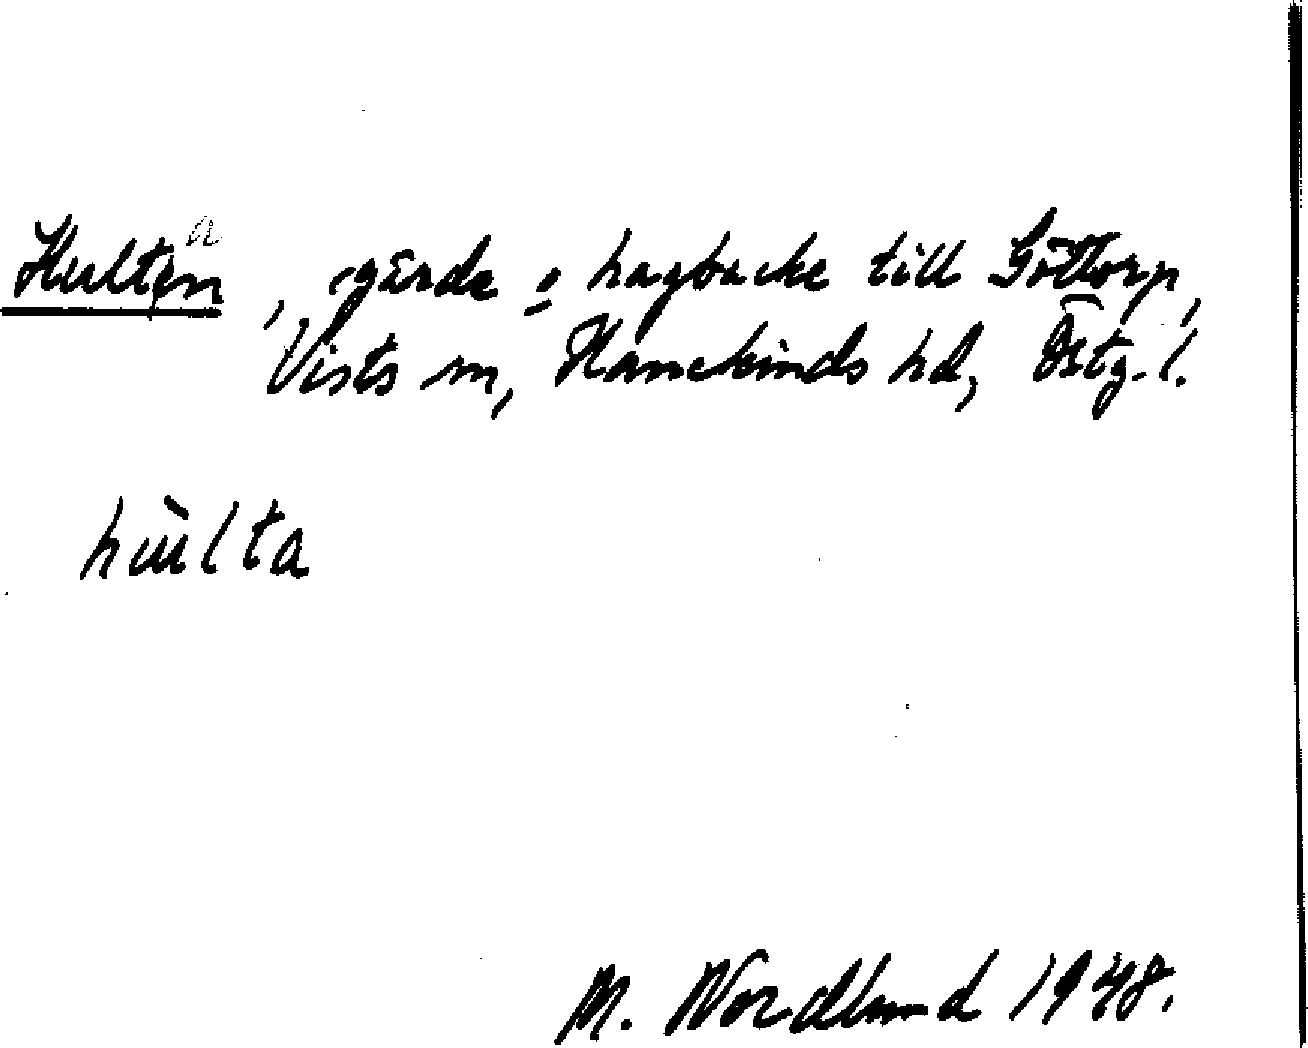 Hultan, gärde o hagbacke till Göttorp,
Vists sn, Hanekinds hd, Östg. l.
hùlta
M. Nordlund 1948.